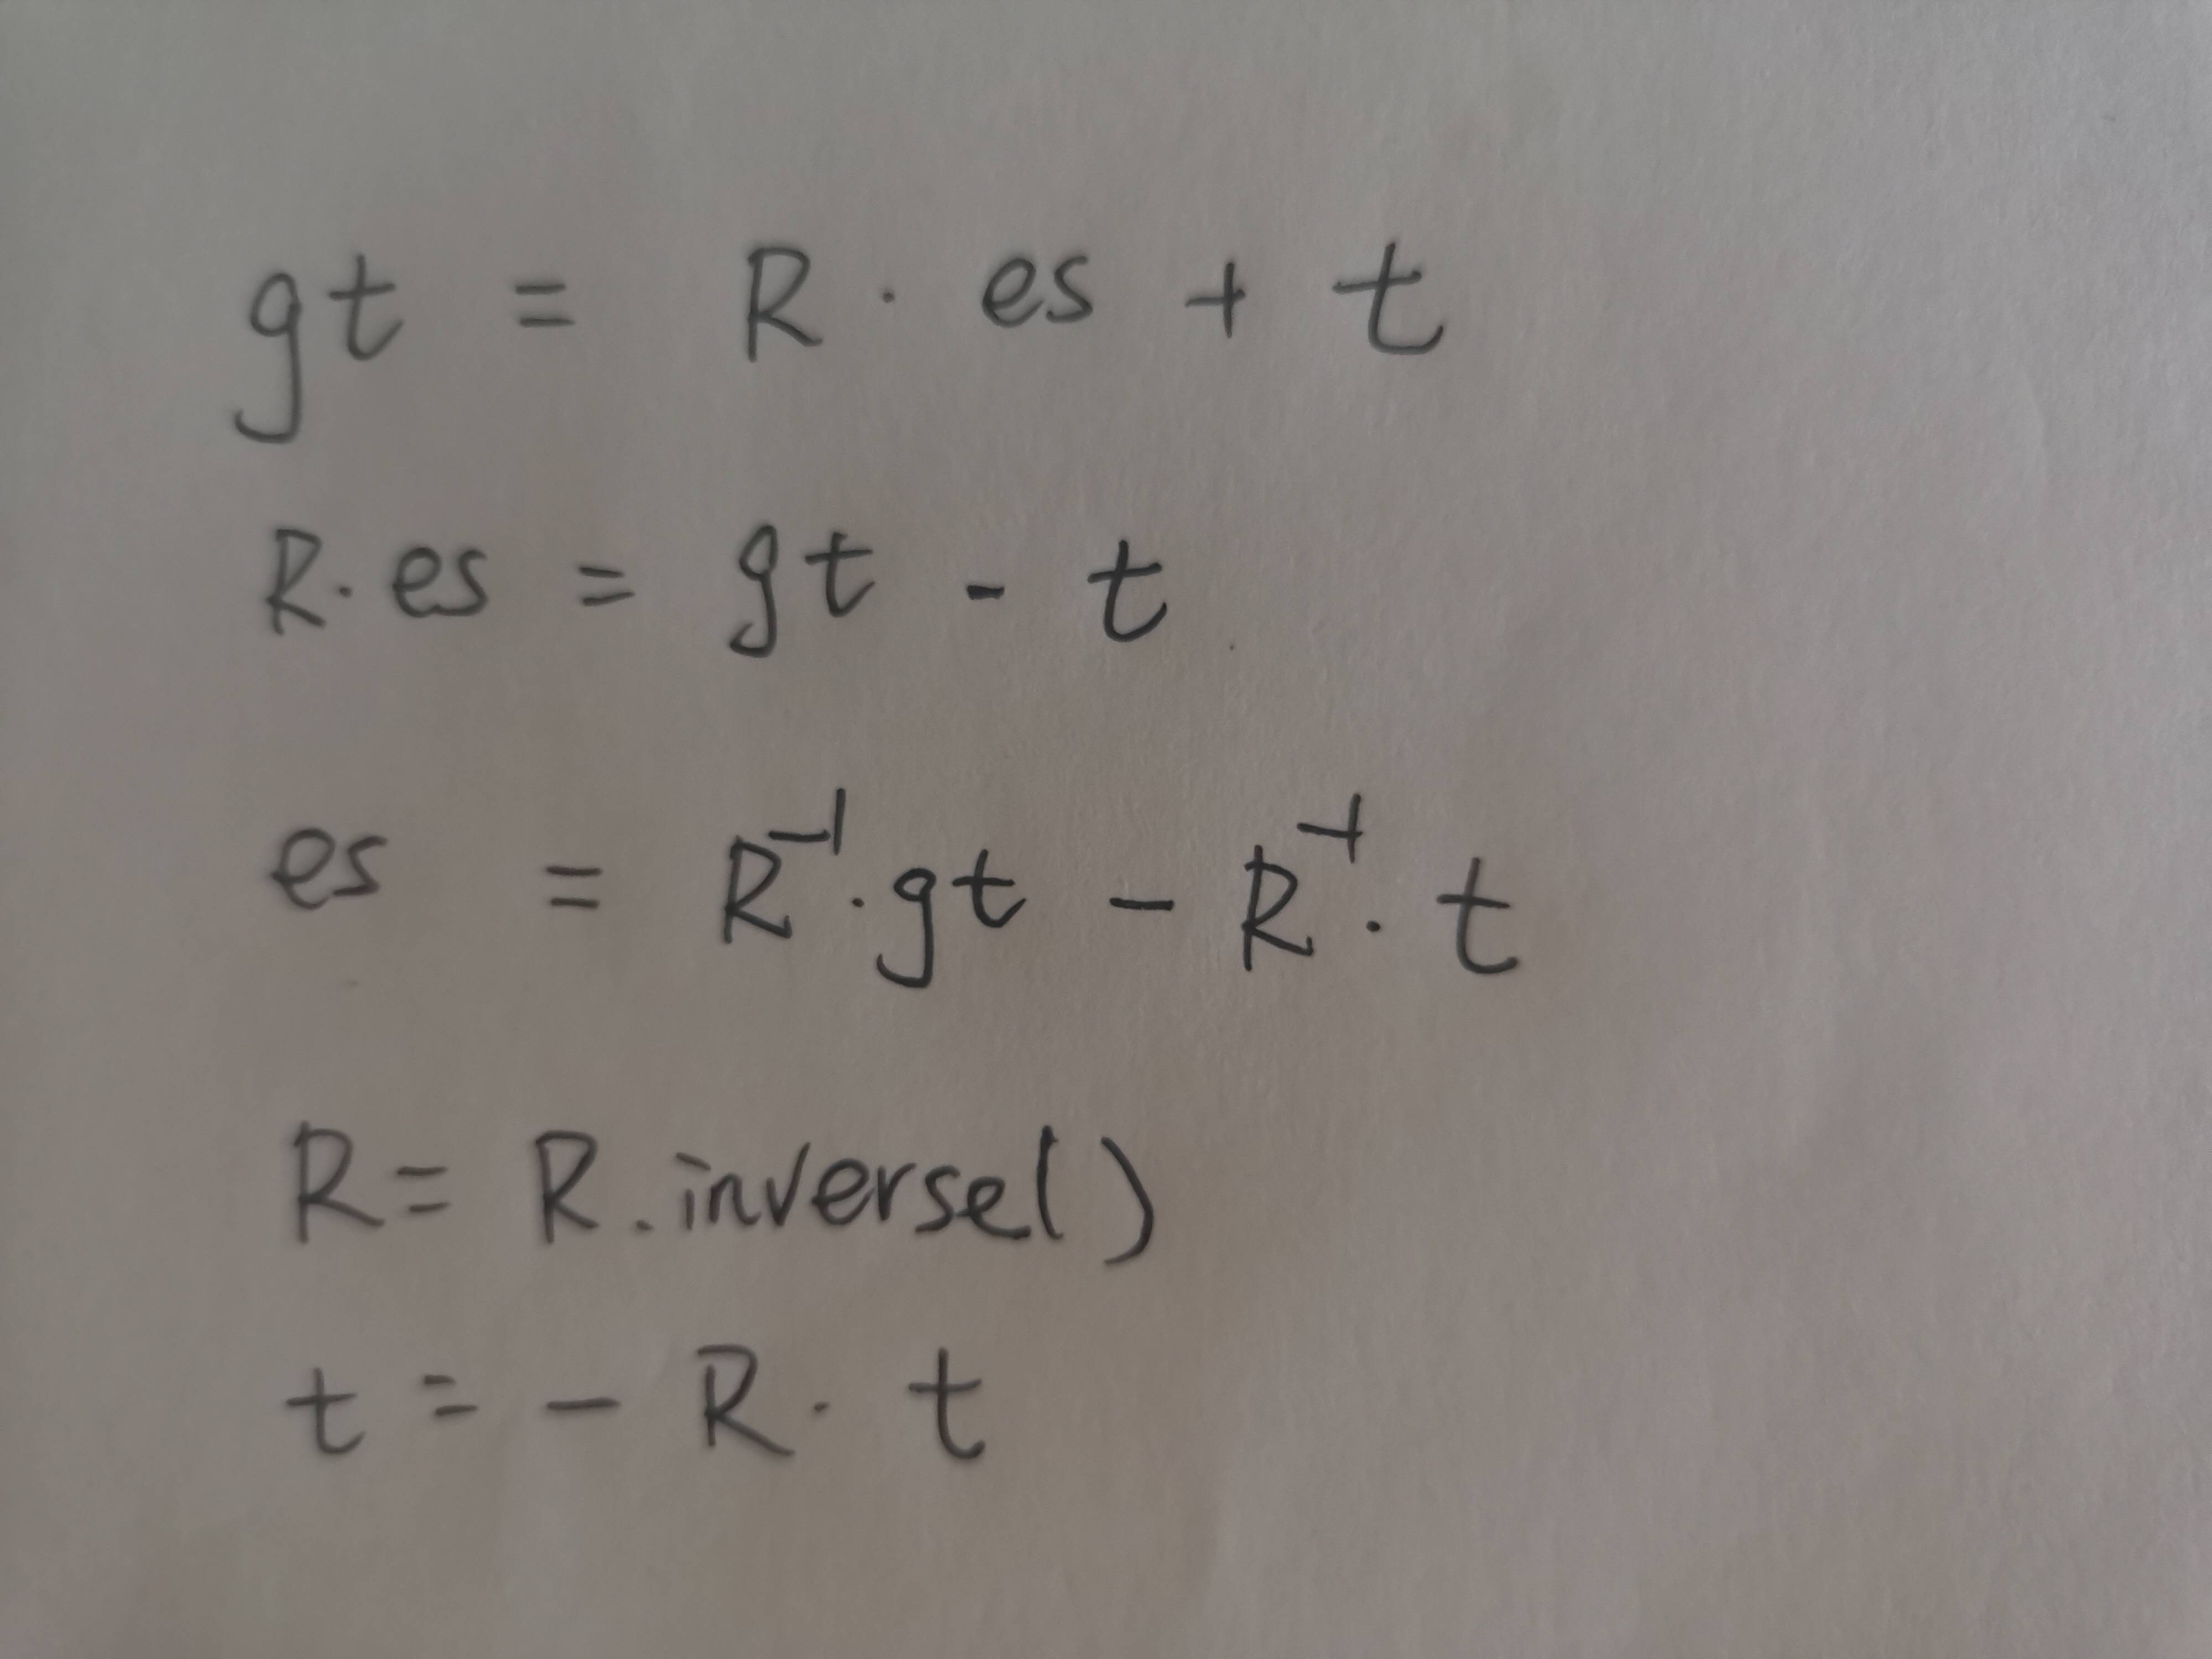 gt = R · es + t
R · es = gt - t
es = R⁻¹ · gt - R⁻¹ · t
R = R.inverse()
t = - R · t